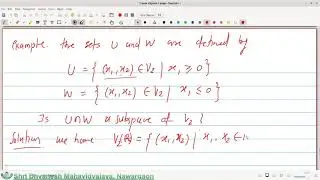 Example. The sets U and W are defined by
U = { (x₁, x₂) ∈ V₂ | x₁ ≥ 0 }
W = { (x₁, x₂) ∈ V₂ | x₁ ≤ 0 }
Is U∩W a subspace of V₂ ?
Solution we have V₂(R) = { (x₁, x₂) | x₁, x₂ ∈
Shri Dnyanesh Mahavidyalaya, Nawargaon